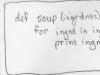 def soup(ingrdnts)
for ingrd in in
print ingr